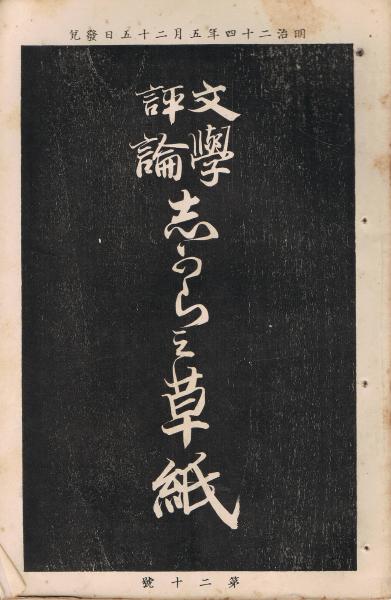 明治二十四年五月二十五日發兌
文學
評論
志からみ草紙
第二十號